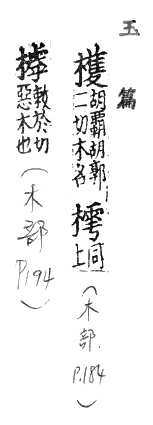 玉篇
檴胡霸胡郭二切木名樗同上（木部．P.184）
敕於切惡木也（木部P.194）